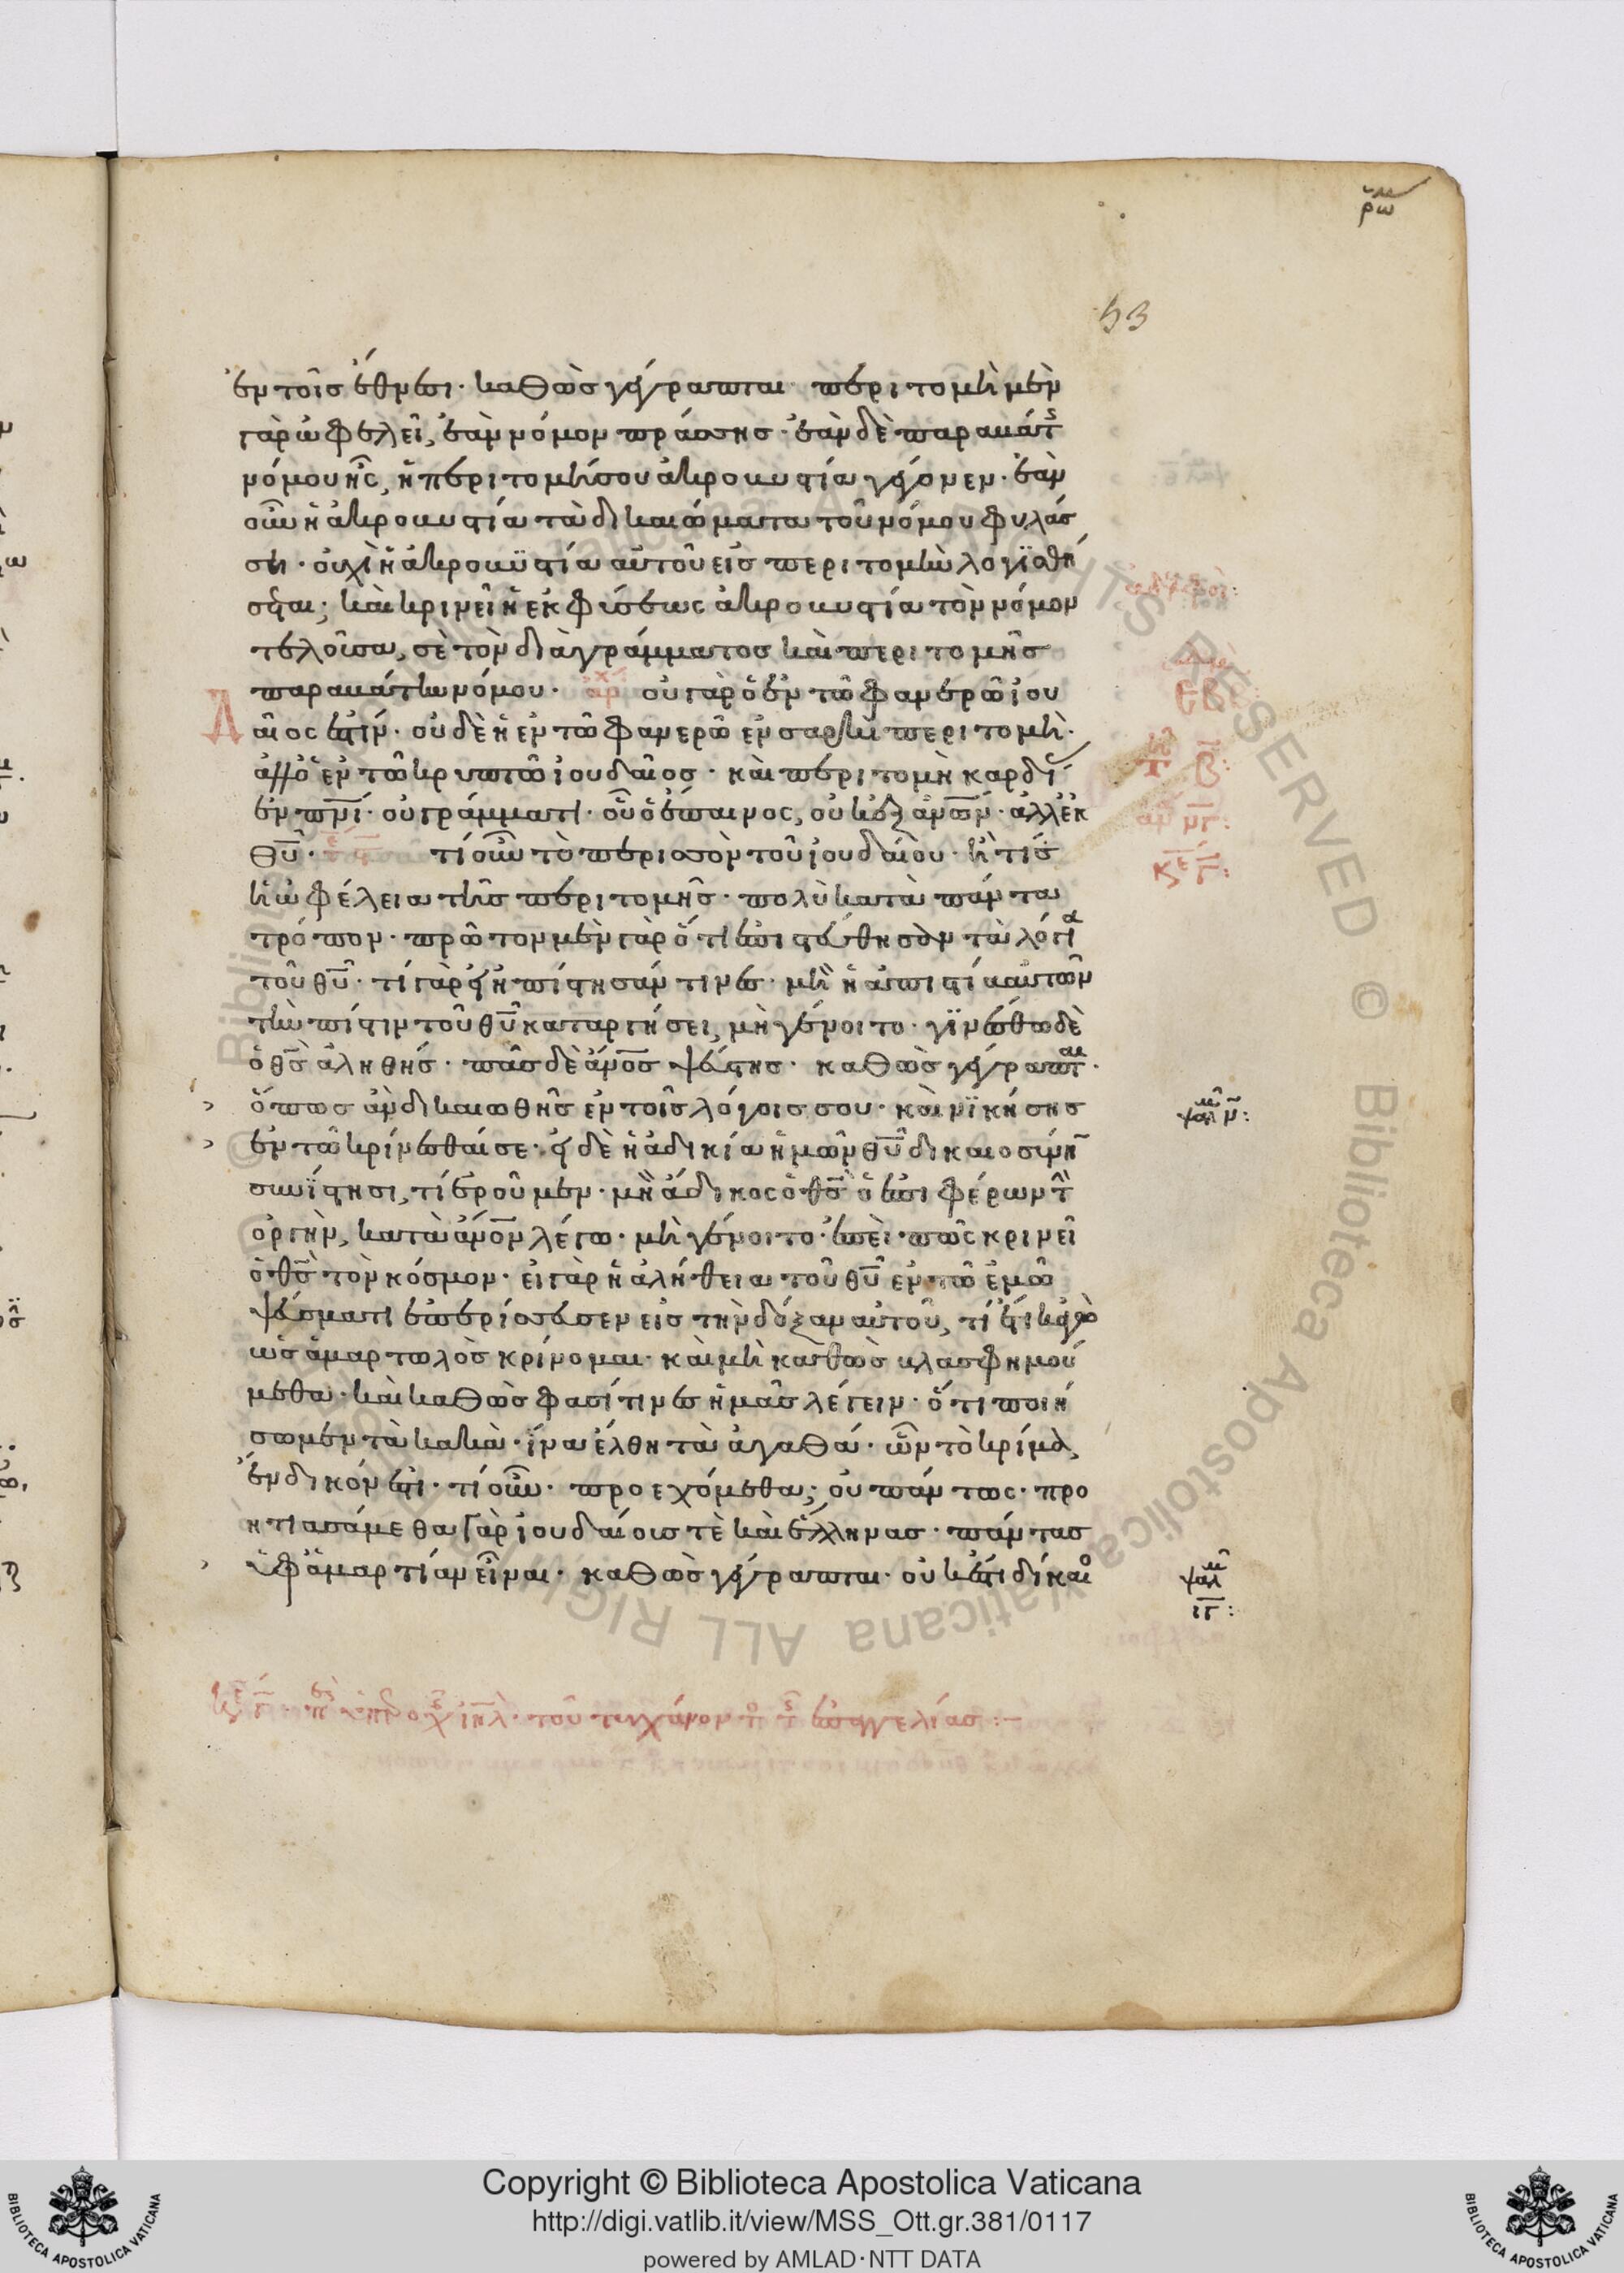 ρωμ
53
ἐν τοῖς ἔθνεσι· καθὼς γέγραπται· περιτομὴ μὲν
γὰρ ὠφελεῖ, ἐὰν νόμον πράσσης· ἐὰν δὲ παραβάτης
νόμου ῆς, ἡ περιτομή σου ἀκροβυστία γέγονεν· ἐὰν
οὖν ἡ ἀκροβυστία τὰ δικαιώματα τοῦ νόμου φυλάσ
ση· οὐχὶ ἡ ἀκροβυστία αὐτοῦ εἰς περιτομὴν λογϊσθή
σεται; καὶ κρινεῖ ἡ ἐκ φύσεως ἀκροβυστία τὸν νόμον
τελοῦσα, σὲ τὸν διὰ γράμματος καὶ περιτομῆς
παραβάτην νόμου· ἀρχ οὐ γὰρ ὁ ἐν τῶ φανερῶ ἰου
δαῖος ἐστίν· οὐδὲ ἡ ἐν τῶ φανερῶ ἐν σαρκὶ περιτομή·
ἀλλ' ὁ ἐν τῶ κρυπτῶ ἰουδαῖος· καὶ περιτομὴ καρδί
ἐν πνι· οὐ γράμματι· οὗ ὁ ἔπαινος, οὐκ ἐξ ἀνων· ἀλλ' ἐκ
θυ· τί οὖν τὸ περισσὸν τοῦ ἰουδαίου· ἢ τίς
ἡ ὠφέλεια τῆς περιτομῆς· πολὺ κατὰ πάντα
τρόπον· πρῶτον μὲν γὰρ ὅτι ἐπιστεύθησαν τὰ λόγια
τοῦ θυ· τί γὰρ εἰ ἠπίστησάν τινες· μὴ ἡ ἀπιστία αὐτῶν
τὴν πίστιν τοῦ θυ καταργήσει, μὴ γένοιτο· γϊνέσθω δὲ
ὁ θς ἀληθής· πᾶς δὲ ἀνος ψεύστης· καθὼς γέγραπται·
ὅπως ἂν δικαιωθῆς ἐν τοῖς λόγοις σου· καὶ νϊκήσης
ψαλμ ν:
ἐν τῶ κρίνεσθαί σε· εἰ δὲ ἡ ἀδικία ἡμῶν θυ δικαιοσύνη
συνΐστησι, τί ἐροῦμεν· μὴ ἄδικος ὁ θς ὁ ἐπιφέρων τὴν
ὀργὴν, κατὰ ἀνον λέγω· μὴ γένοιτο· ἐπεὶ πῶς κρινεῖ
ὁ θς τὸν κόσμον· εἰ γὰρ ἡ ἀλήθεια τοῦ θυ ἐν τῶ ἐμῶ
ψεύσματι ἐπερίσσευσεν εἰς τὴν δόξαν αὐτοῦ, τί ἔτι κἀγὼ
ὡς ἁμαρτωλὸς κρίνομαι· καὶ μὴ καθὼς βλασφημού
μεθα· καὶ καθὼς φασί τινες ἡμᾶς λέγειν· ὅτι ποιή
σωμεν τὰ κακὰ· ἵνα ἔλθη τὰ ἀγαθά· ὧν τὸ κρίμα,
ἔνδικόν ἐστι· τί οὖν· προεχόμεθα; οὐ πάντως· προ
ητιασάμεθα γὰρ ἰουδαίους τὲ καὶ ἕλληνας· πάντας
ὑφ' ἁμαρτίαν εἶναι· καθὼς γέγραπται· οὐκ ἔστι δίκαιο
ψαλμ
ιγ: